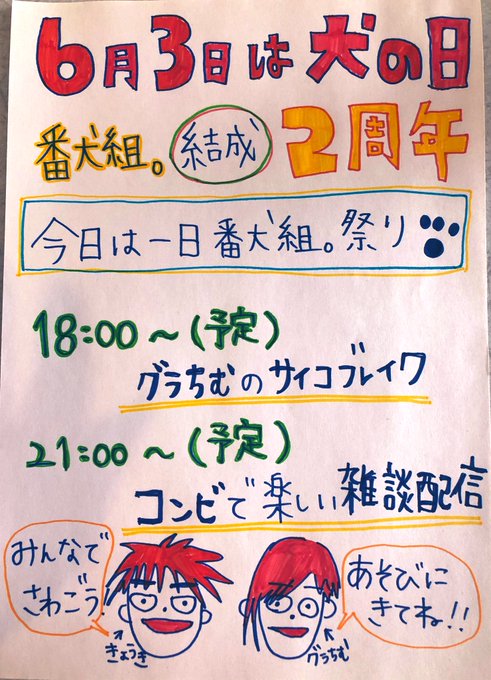 6月3日は犬の日
番犬組。結成2周年
今日は一日番犬組。祭り
18:00～(予定)
グラちむのサイコブレイク
21:00～(予定)
コンビで楽しい雑談配信
みんなで
さわごう!
あそびに
きてね!!
きょうき
グラちむ